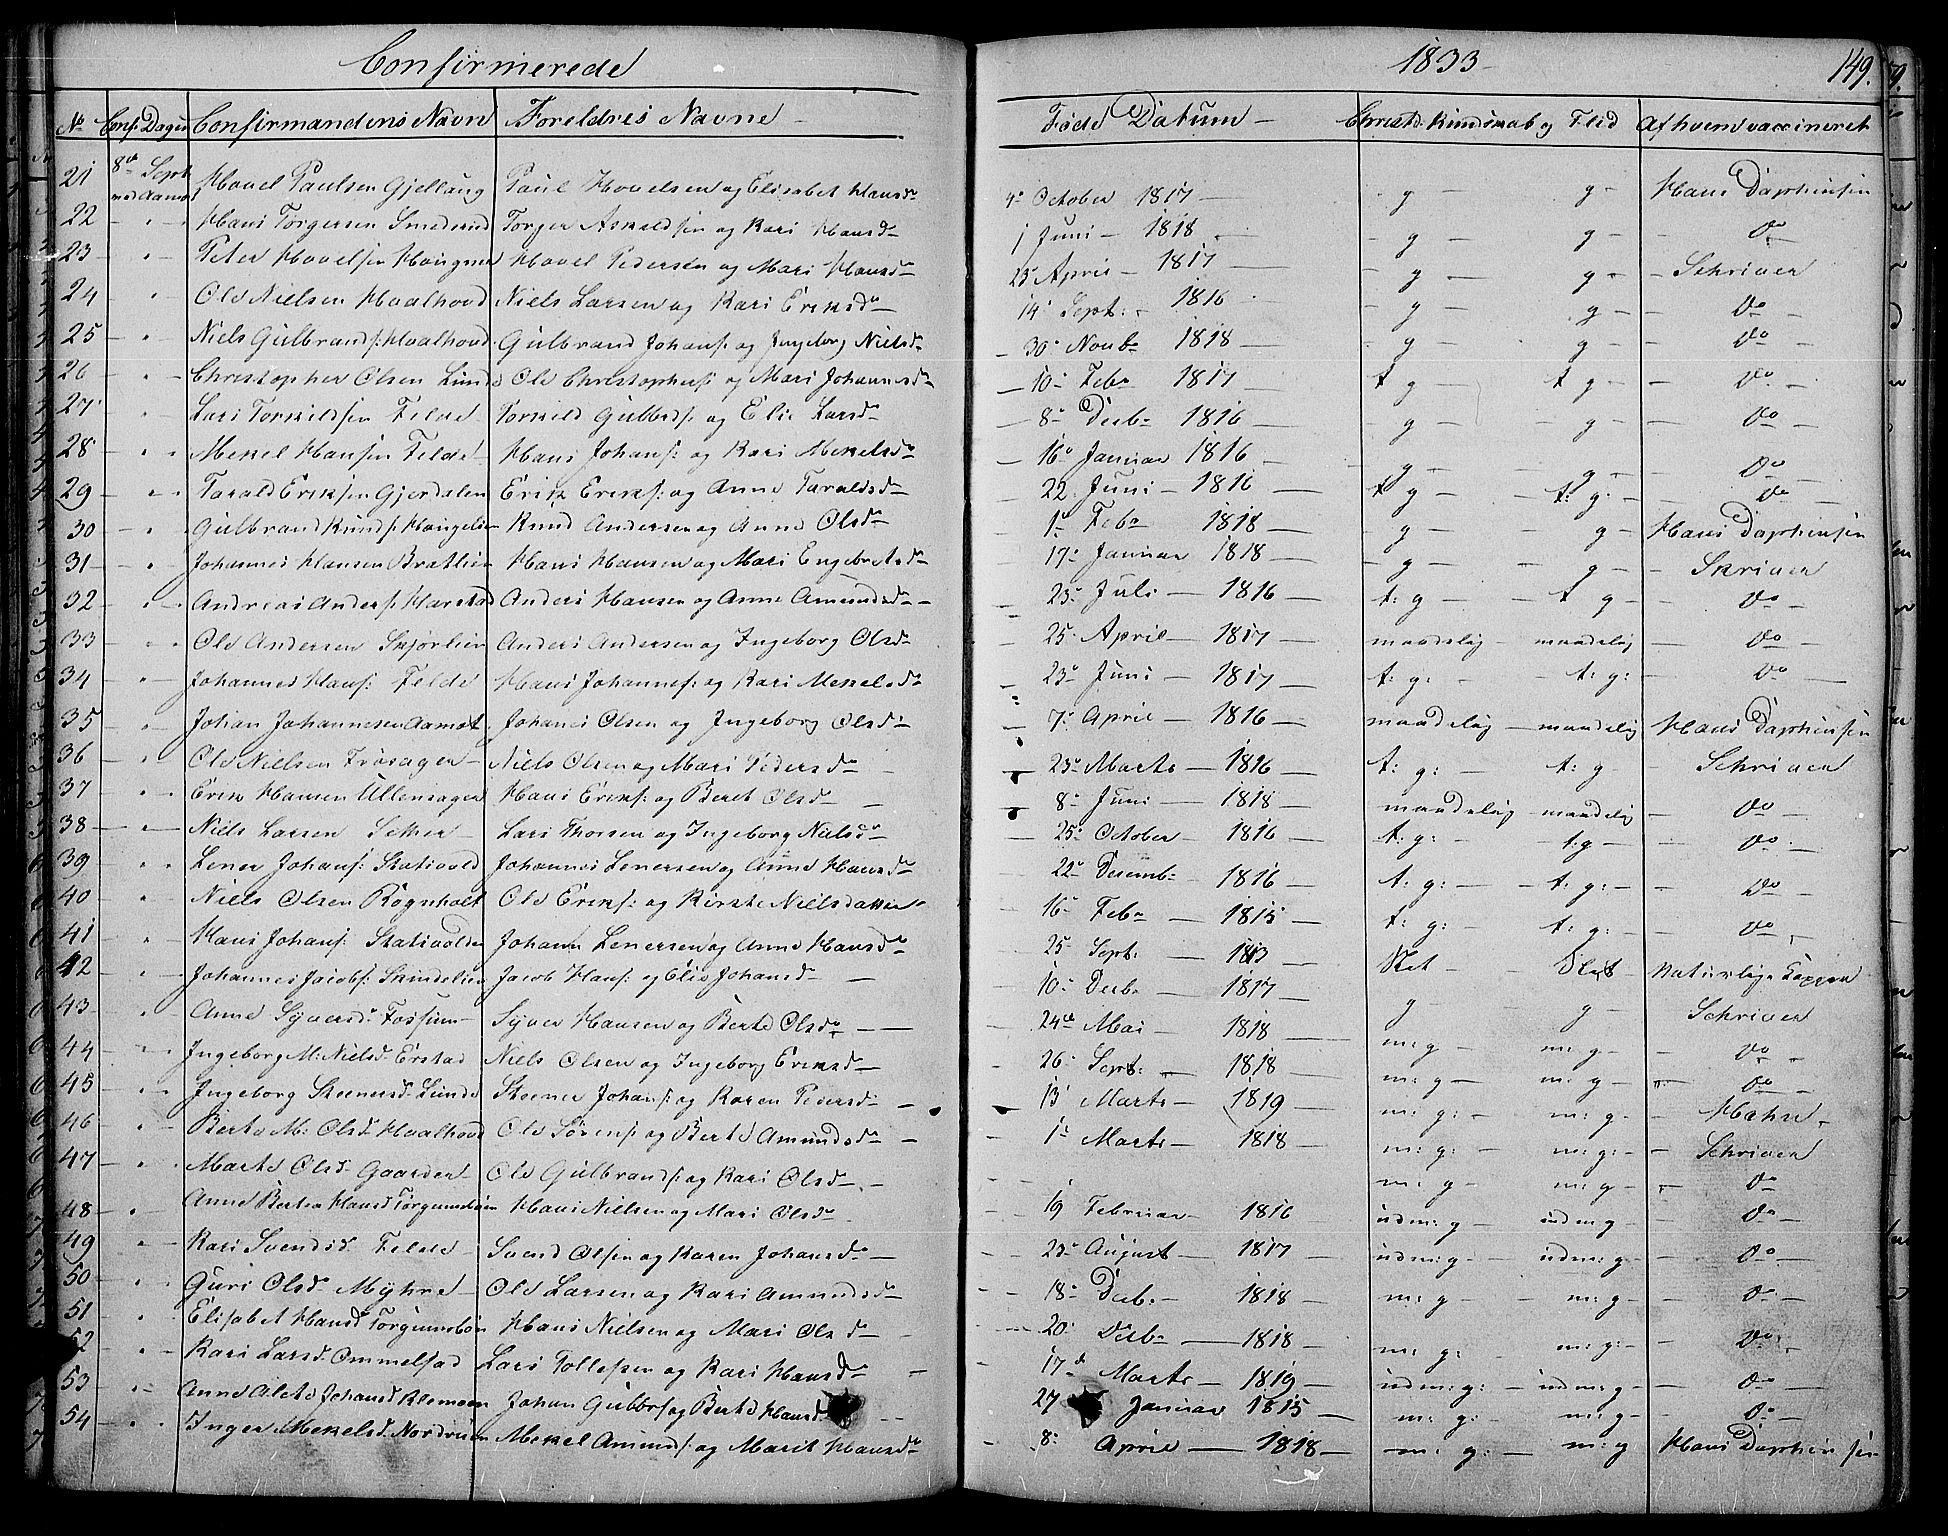 Confirmerede
1833 149.
No Conf: Dagen Confirmandens Navn Foreldres Navne Føde Datum Christd. Kundskab og Flid Af hvem vaccineret
21 8de Sept ved Aamot Hovel Paulsen Gjellaug Paul Hovelsen og Elisabet Hansd 4 October 1817 g g Hans Daphinsen
22 " Hans Torgersen Smedrud Torger Askeldsen og Kari Hansd 1 Juni 1818 g g Do
23 " Peter Hovelsen Haugner Hovel Pedersen og Mari Hansd 25 April 1817 g g Schriver
24 " Ole Nielsen Hoalhovd Niels Larsen og Kari Eriksd 14 Sept: 1816 g g Do
25 " Niels Gulbrands: Hoalhovd Gulbrand Johans: og Ingeborg Nielsd 30 Novb 1818 g g Do
26 " Christopher Olsen Lunde Ole Christophers: og Mari Johannesd 10 Feb 1817 t g t g Do
27 " Lars Torkildsen Felde Torkild Gulbrds og Elie Larsd 8 Decb 1816 g g Do
28 " Mekel Hansen Felde Hans Johans: og Kari Mekelsd 16 Januar 1816 g g Do
29 " Tarald Eriksen Gjerdalen Erik Eriks: og Anne Taraldsd 22 Juni 1816 t g t: g: Do
30 " Gulbrand Knuds: Haugelien Knud Andersen og Anne Olsd 1 Feb 1818 g g Hans Daphinsen
31 " Johannes Hansen Bratlien Hans Hansen og Mari Engebretsd 17 Januar 1818 g g Skriver
32 " Andreas Anders: Harstad Anders Hansen og Anne Amundsd 23 Juli 1816 t: g t g Do
33 " Ole Andersen Skjørlien Anders Andersen og Ingeborg Olsd 25 April 1817 maadelig maadelig Do
34 " Johannes Hans: Felde Hans Johannes: og Kari Mekelsd 23 Juni 1817 t: g: t: g: Do
35 " Johan Johannesen Aamot Johanes Olsen og Ingeborg Olsd 7 April 1816 maadelig maadelig Hans Daphinsen
36 " Ole Nielsen Frøsagen Niels Olsen og Mari Pedersd 23 Marts 1816 t: g: t: g Schriver
37 " Erik Hansen Ullensager Hans Eriks: og Beret Olsd 8 Juni 1818 maadelig maadelig Do
38 " Niels Larsen Setker Lars Thorsen og Ingeborg Nielsd 25 October 1816 t: g: t: g Do
39 " Lener Johans: Stativold Johannes Lenersen og Anne Hansd 22 Decemb 1816 t: g: t: g: Do
40 " Niels Olsen Rognholt Ole Eriks: og Kirste Nielsdatter 16 Feb 1815 t: g: t: g: Do
41 " Hans Johans: Stativolden Johann Lenersen og Anne Hansd 25 Sept: 1813 Slet Slet Naturlige Kopper
42 " Johannes Jacobs: Skindelien Jacob Hans: og Elie Johansd 10 Decb 1817 g g Schriver
43 " Anne Syversd Fossum Syver Hansen og Berte Olsd 24de Mai 1818 m: g m: g Do
44 " Ingeborg M: Nielsd Erstad Niels Olsen og Ingeborg Eriksd 26 Sept: 1818 m: g m: g Do
45 " Ingeborg Steenersd Lunde Steener Johans: og Karen Pedersd 13 Marts 1819 m: g: m: g Hahn
46 " Berte M: Olsd Hoalhovd Ole Sørens: og Berte Amundsd 1 Marts 1818 m: g: m: g: Schriver
47 " Marte Olsd Gaarder Ole Gulbrands: og Kari Olsd m: g m: g Do
48 " Anne Berte Hansd Torgunsbøen Hans Nielsen og Mari Olsd 19 Februar 1816 udm: g udm: g Do
49 " Kari Svendsd Felde Svend Olsen og Karen Johansd 23 August 1817 udm: g udm: g Do
50 " Guri Olsd Myhre Ole Larsen og Kari Amundsd 18 Decb: 1818 m: g m: g Do
51 " Elisabet Hansd Torgunsbøn Hans Nielsen og Mari Olsd 20 Decb 1818 m: g: m: g: Do
52 " Kari Larsd Ommelstad Lars Tollefsen og Kari Hansd 17 Marts 1819 udm: g: udm: g Do
53 " Anne Johansd Klemoen Johan Gulbrs og Berte Hansd 27 Januar 1815 m: g: m: g Do
54 " Inger Mekelsd Nordruen Mekel Amunds: og Marit Hansd 8 April 1818 m: g: m: g Hans Daphinsen